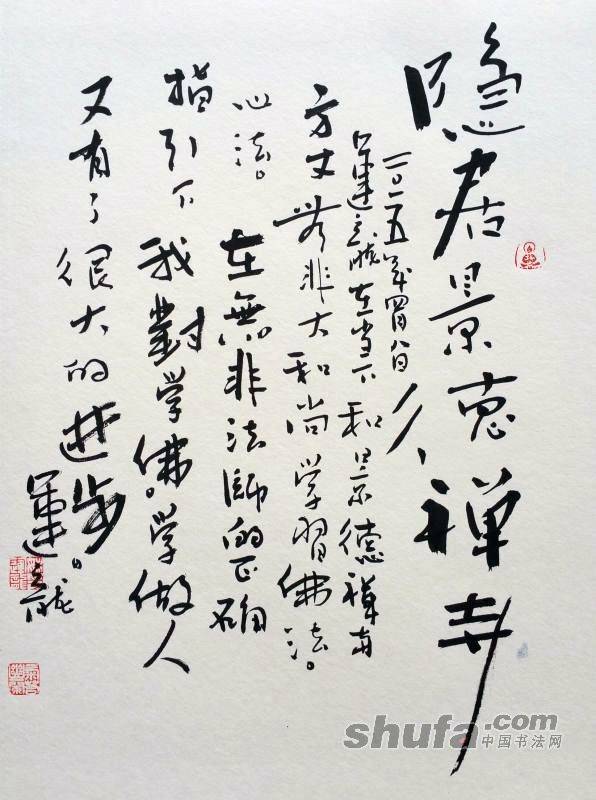 隐居景德禅寺
二〇一五年四月八日
运之晓在当下和景德禅寺
方丈无非大和尚学習佛法。
心法。
在無非法師的正确
指引下我對学佛。学做人
又有了很大的进步。
shufa.com
中国书法网